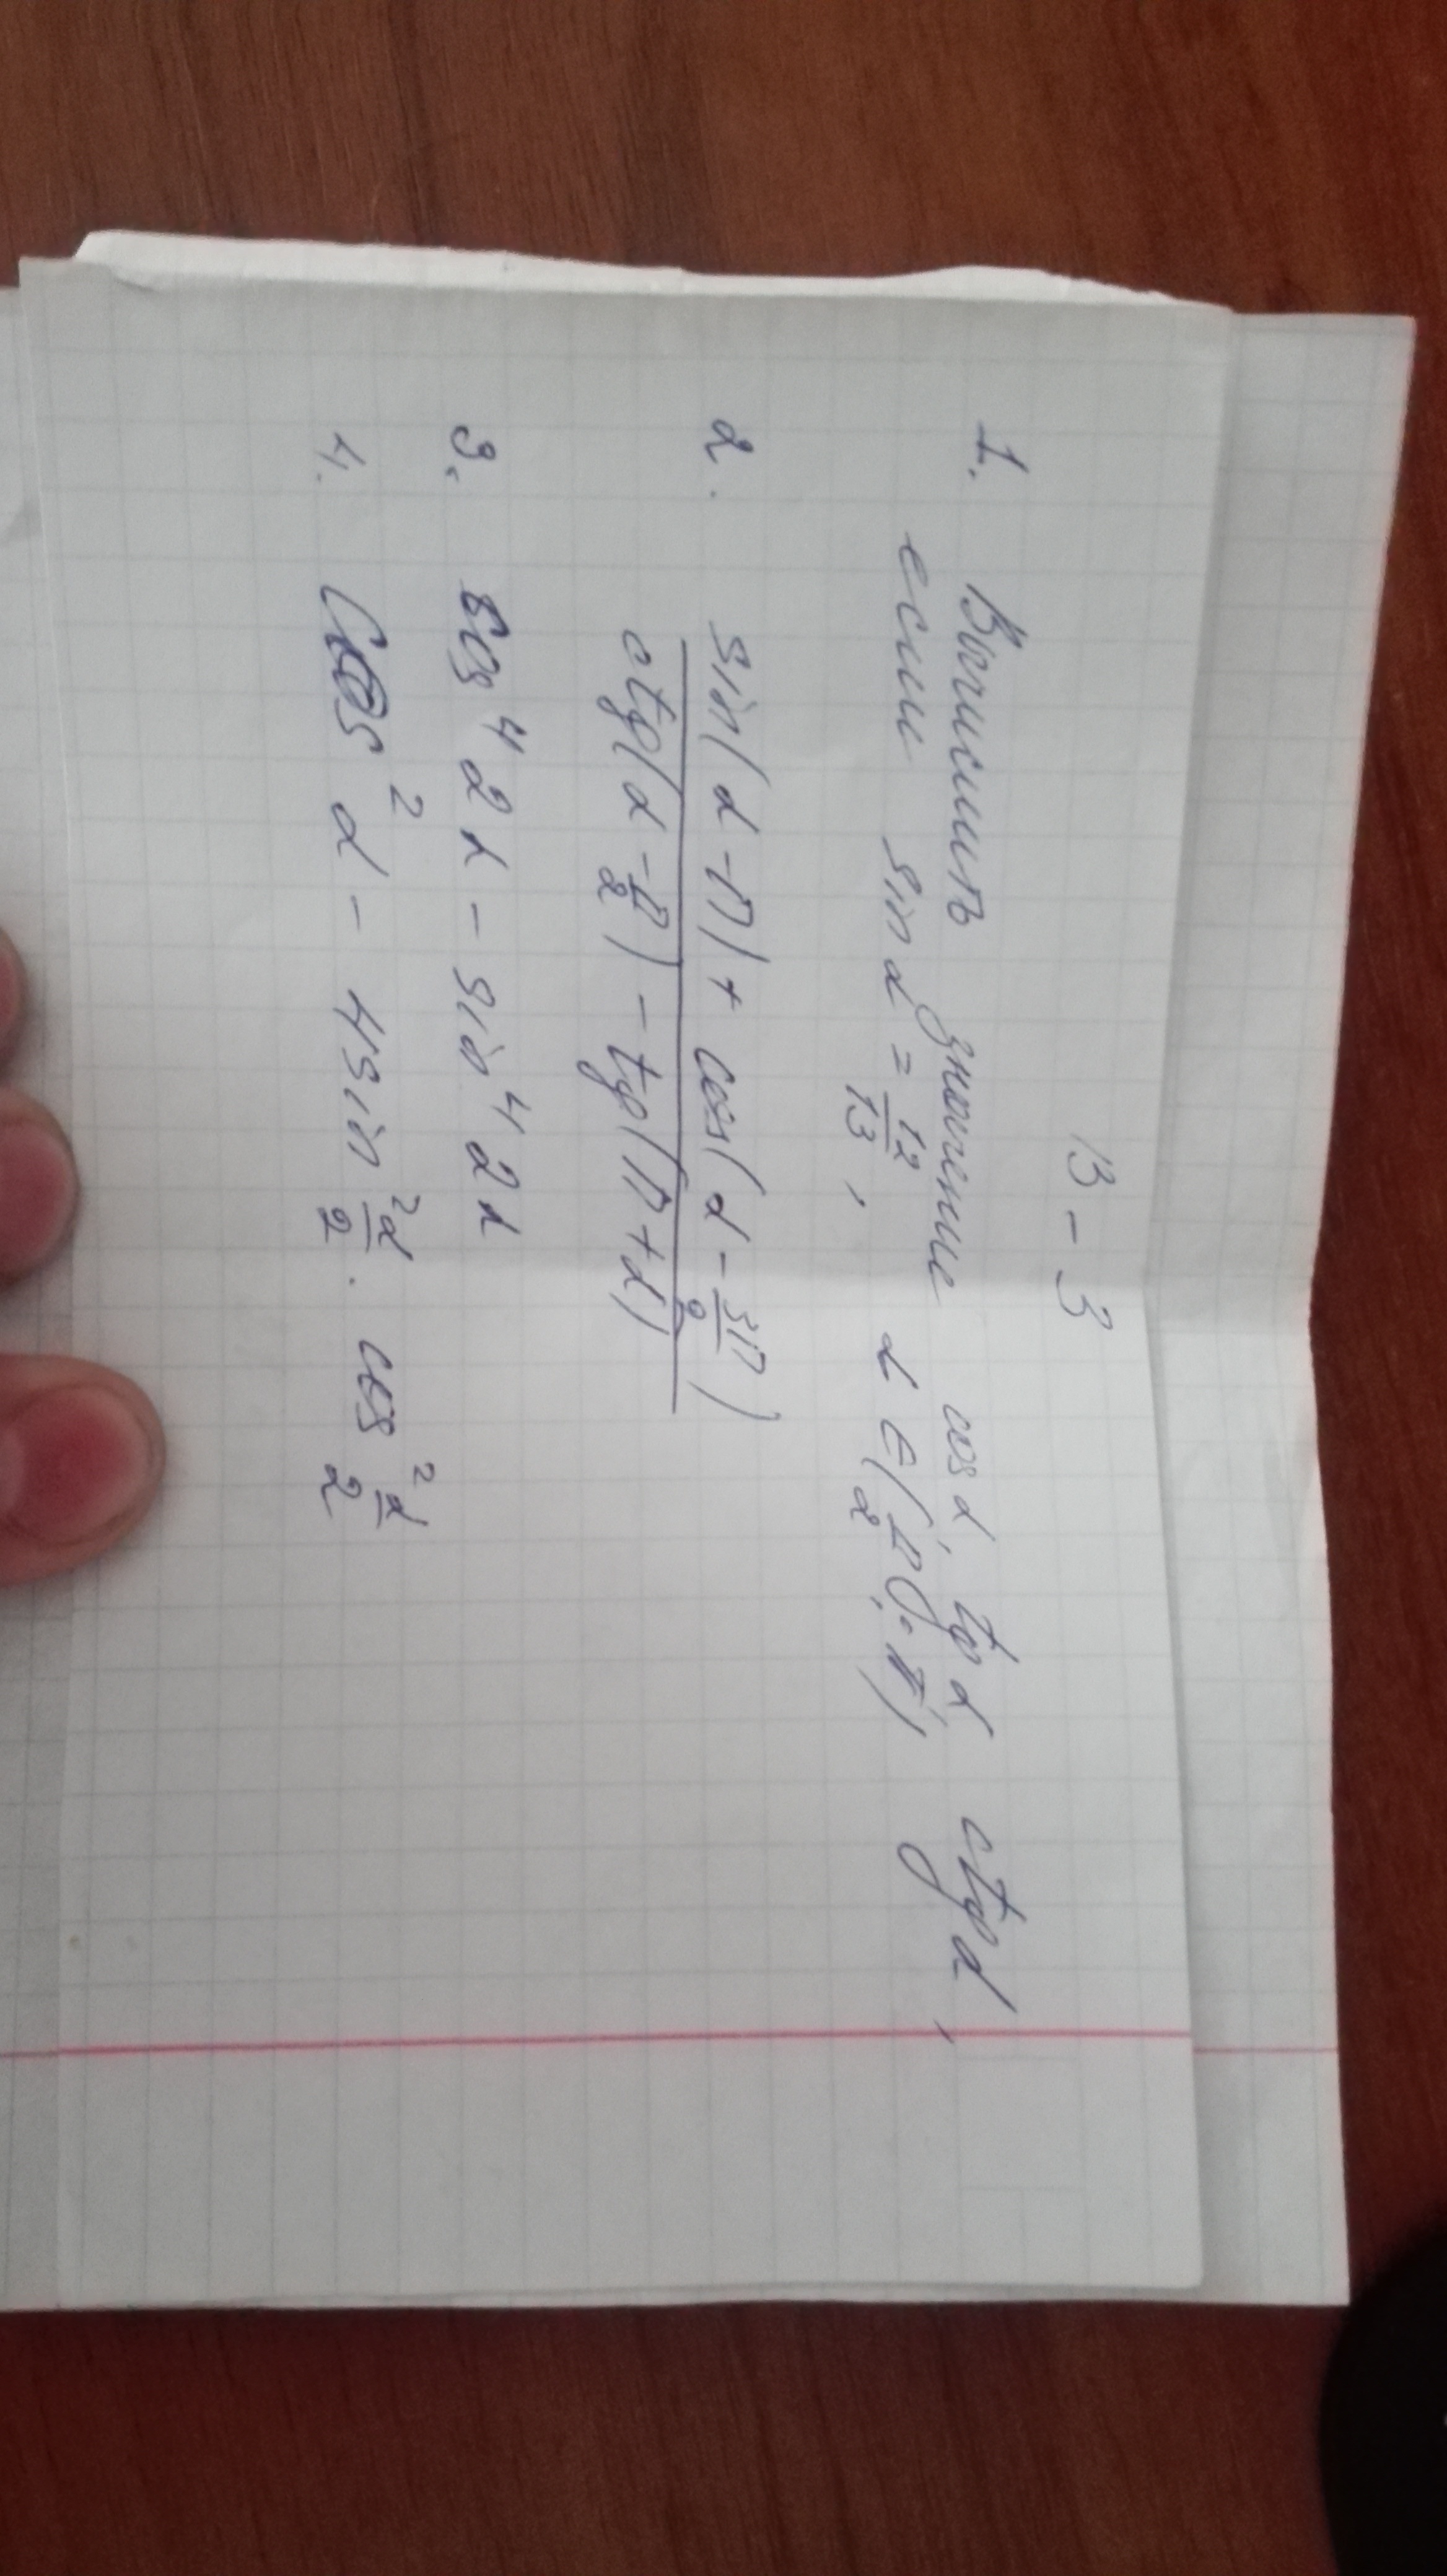 В-3
1. Вычислить значение cos α, tg α, ctg α,
если sin α = 12/13, α ∈ (π/2; π)
2. (sin(α - π) + cos(α - 3π/2)) / (ctg(α - π/2) - tg(π + α))
3. cos⁴ 2α - sin⁴ 2α
4. Cos² α - 4 sin² α/2 · cos² α/2